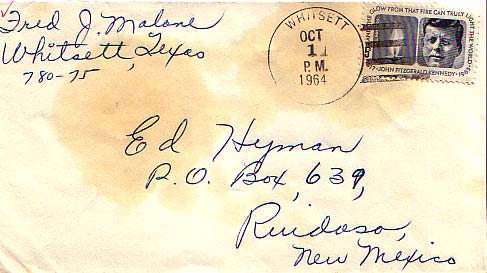 Fred J. Malone
Whitsett, Texas
780-75
WHITSETT
OCT
1
P. M.
1964
GLOW FROM THAT FIRE CAN TRULY LIGHT THE WORLD
JOHN FITZGERALD KENNEDY
Ed Hyman
P.O. Box, 639,
Ruidoso,
New Mexico